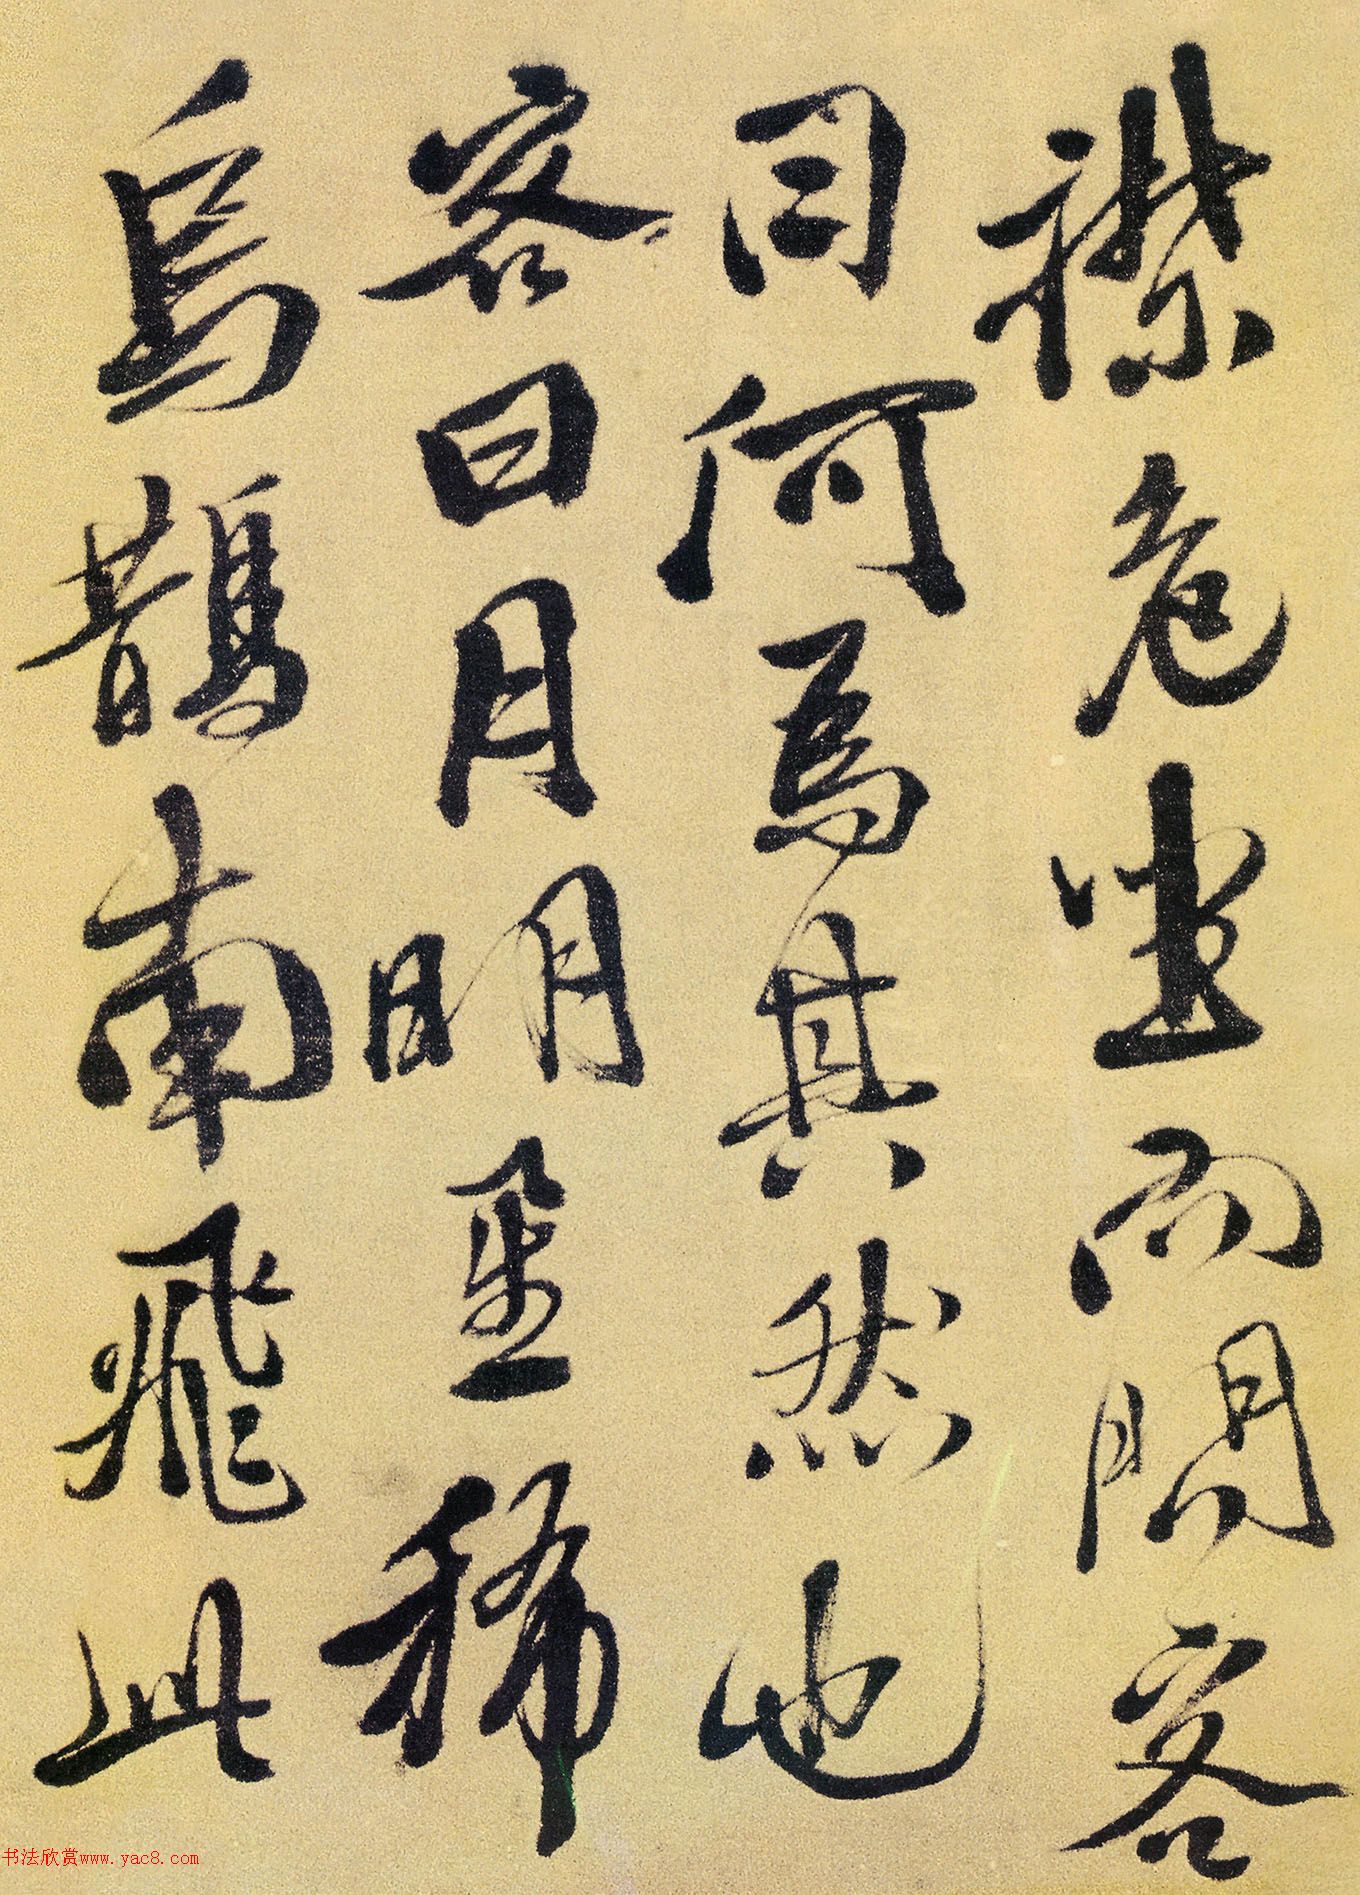 襟危坐而問客
曰何為其然也
客曰月明星稀
烏鵲南飛此
书法欣赏www.yac8.com